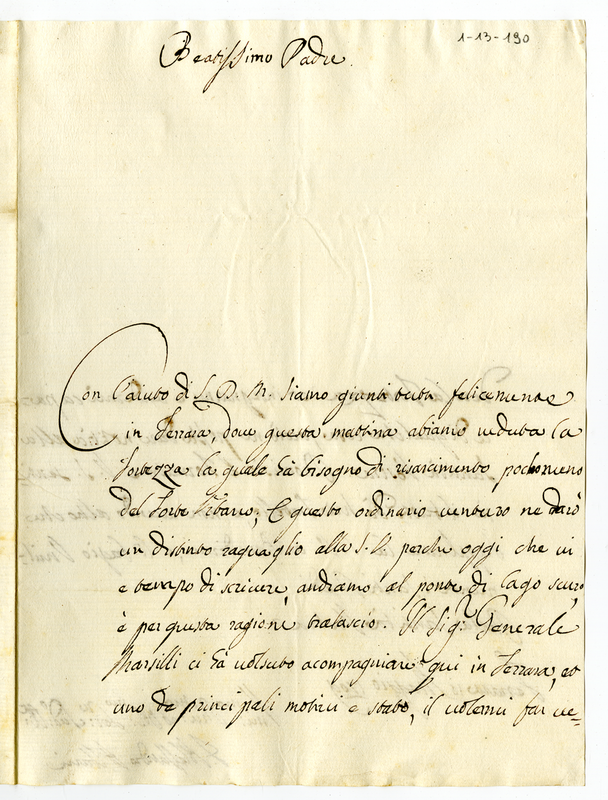 1-13-190
Beatissimo Padre.
Con l'aiuto di S. D. M. siamo giunti tutti felicemente
in Ferrara, dove questa mattina abiamo veduta la
Fortezza la quale hà bisogno di risarcimento pochomeno
del Forte Urbano; E questo ordinario venturo ne darò
un distinto raguaglio alla S. V. perche oggi che vi
e tempo di scrivere, andiamo al ponte di lago scuro,
è per questa ragione tralascio. Il Sig.r Generale
Marsilli ci hà volsuto acompagniare qui in Ferrara, et
uno de principali motivi e stato, il volerci far ve=